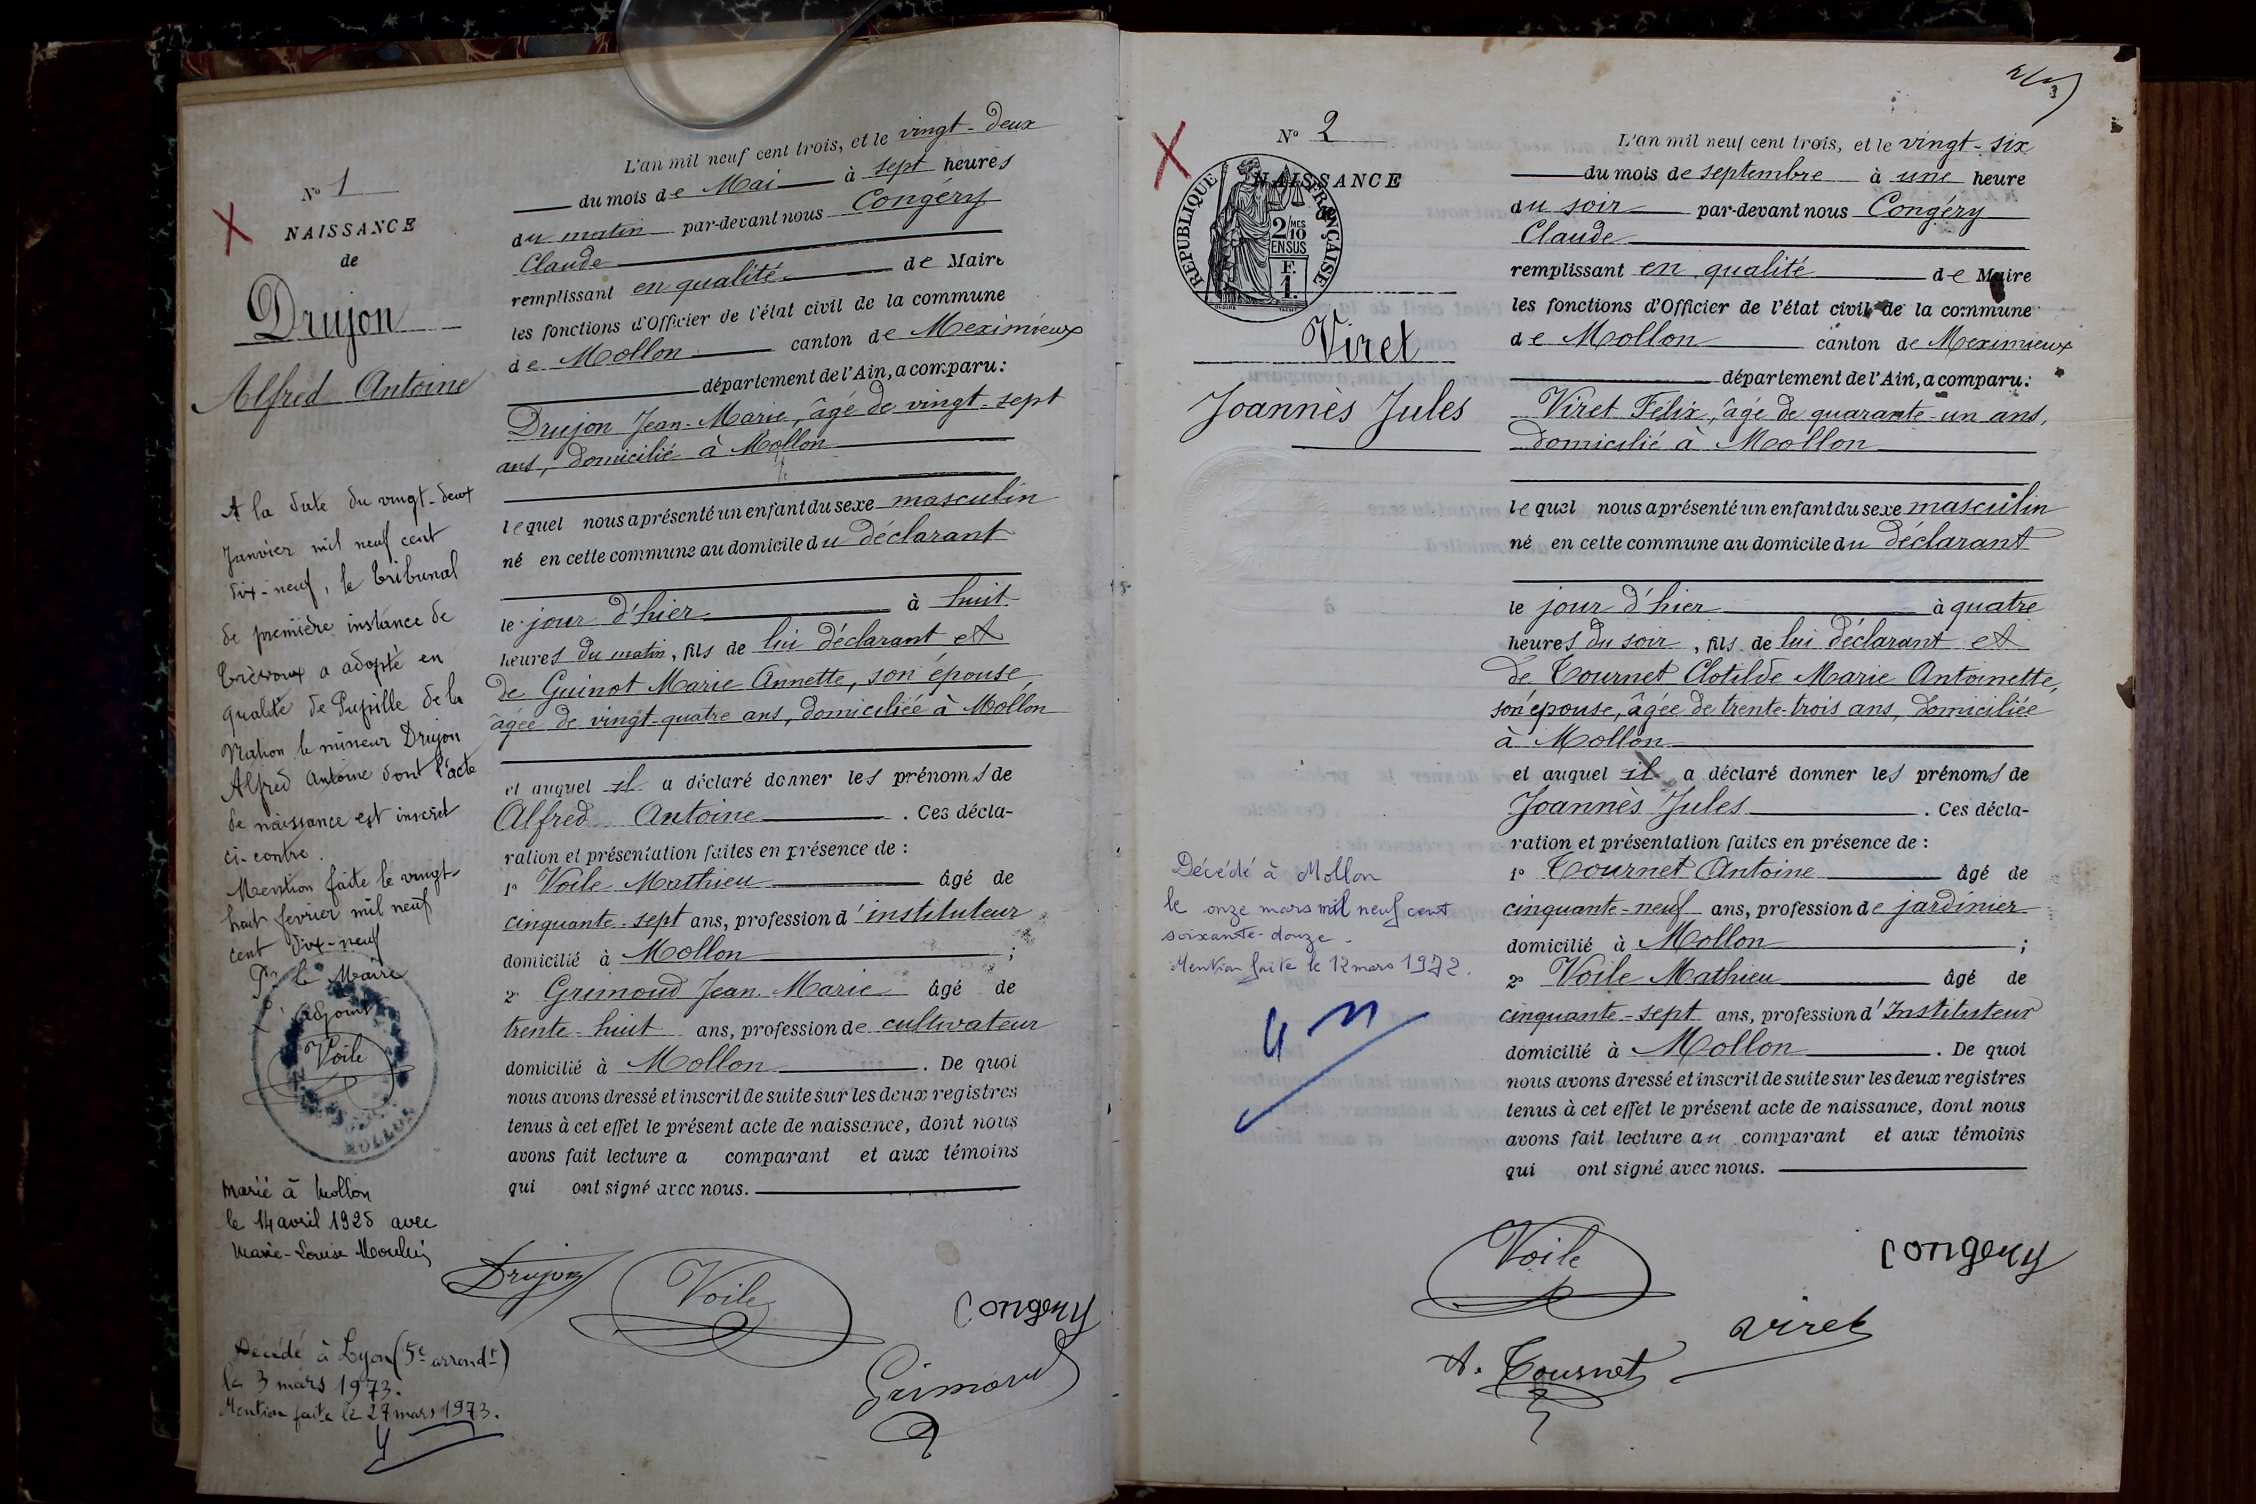 N° 1
NAISSANCE
de
Drujon
Alfred Antoine
A la date du vingt-deux
Janvier mil neuf cent
dix-neuf, le tribunal
de première instance de
Trévoux a adopté en
qualité de Pupille de la
Nation le mineur Drujon
Alfred Antoine dont l'acte
de naissance est inscrit
ci-contre.
Mention faite le vingt-
huit fevrier mil neuf
cent dix-neuf
Pr le Maire
L'adjoint
Voile
MOLLON
Marié à Mollon
le 14 avril 1925 avec
Marie-Louise Moulin
Décédé à Lyon (5e arrondt)
le 3 mars 1973.
Mention faite le 27 mars 1973.
L'an mil neuf cent trois, et le vingt-deux
du mois de Mai à sept heures
du matin par-devant nous Congéry
Claude
remplissant en qualité de Maire
les fonctions d'Officier de l'état civil de la commune
de Mollon canton de Meximieux
département de l'Ain, a comparu:
Drujon Jean-Marie, âgé de vingt-sept
ans, domicilié à Mollon
lequel nous a présenté un enfant du sexe masculin
né en cette commune au domicile du déclarant
le jour d'hier à huit
heures du matin, fils de lui déclarant et
de Guinot Marie Annette, son épouse
âgée de vingt-quatre ans, domiciliée à Mollon
et auquel il a déclaré donner les prénoms de
Alfred Antoine . Ces décla-
ration et présentation faites en présence de :
1° Voile Mathieu âgé de
cinquante-sept ans, profession d'instituteur
domicilié à Mollon ;
2° Grimoud Jean-Marie âgé de
trente-huit ans, profession de cultivateur
domicilié à Mollon . De quoi
nous avons dressé et inscrit de suite sur les deux registres
tenus à cet effet le présent acte de naissance, dont nous
avons fait lecture a comparant et aux témoins
qui ont signé avec nous.
Drujon
Voile
Congery
Grimoud
N° 2
NAISSANCE
REPUBLIQUE FRANÇAISE
2/10 MES
EN SUS
F.
1.
Viret
Joannès Jules
Décédé à Mollon
le onze mars mil neuf cent
soixante-douze.
Mention faite le 12 mars 1972.
L'an mil neuf cent trois, et le vingt-six
du mois de septembre à une heure
du soir par-devant nous Congéry
Claude
remplissant en qualité de Maire
les fonctions d'Officier de l'état civil de la commune
de Mollon canton de Meximieux
département de l'Ain, a comparu:
Viret Félix, âgé de quarante-un ans,
domicilié à Mollon
lequel nous a présenté un enfant du sexe masculin
né en cette commune au domicile du déclarant
le jour d'hier à quatre
heures du soir, fils de lui déclarant et
de Tournet Clotilde Marie Antoinette,
son épouse, âgée de trente-trois ans, domiciliée
à Mollon
et auquel il a déclaré donner les prénoms de
Joannès Jules . Ces décla-
ration et présentation faites en présence de :
1° Tournet Antoine âgé de
cinquante-neuf ans, profession de jardinier
domicilié à Mollon ;
2° Voile Mathieu âgé de
cinquante-sept ans, profession d'Instituteur
domicilié à Mollon . De quoi
nous avons dressé et inscrit de suite sur les deux registres
tenus à cet effet le présent acte de naissance, dont nous
avons fait lecture au comparant et aux témoins
qui ont signé avec nous.
Voile
Congery
Viret
A. Tournet